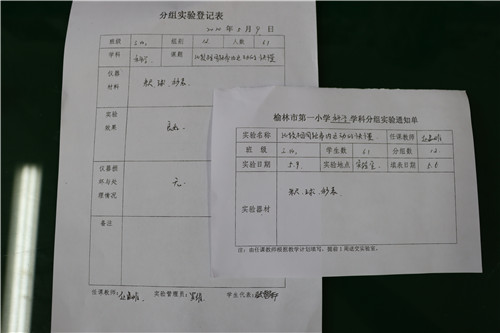 分组实验登记表
年 5 月 9 日
班级 组别 12 人数 61
学科 科学 课题 比较相同距离内运动的快慢
仪器材料 尺、球、秒表.
实验效果 良好
仪器损坏与处理情况 无.
备注
任课教师: 实验管理员: 学生代表:
榆林市第一小学科学学科分组实验通知单
实验名称 比较相同距离内运动的快慢 任课教师
班 级 学生数 61 分组数 12
实验日期 5.9. 实验地点 实验室. 填表日期 5.6
实验器材 尺、球、秒表.
注:由任课教师根据教学计划填写,提前1周递交实验室。